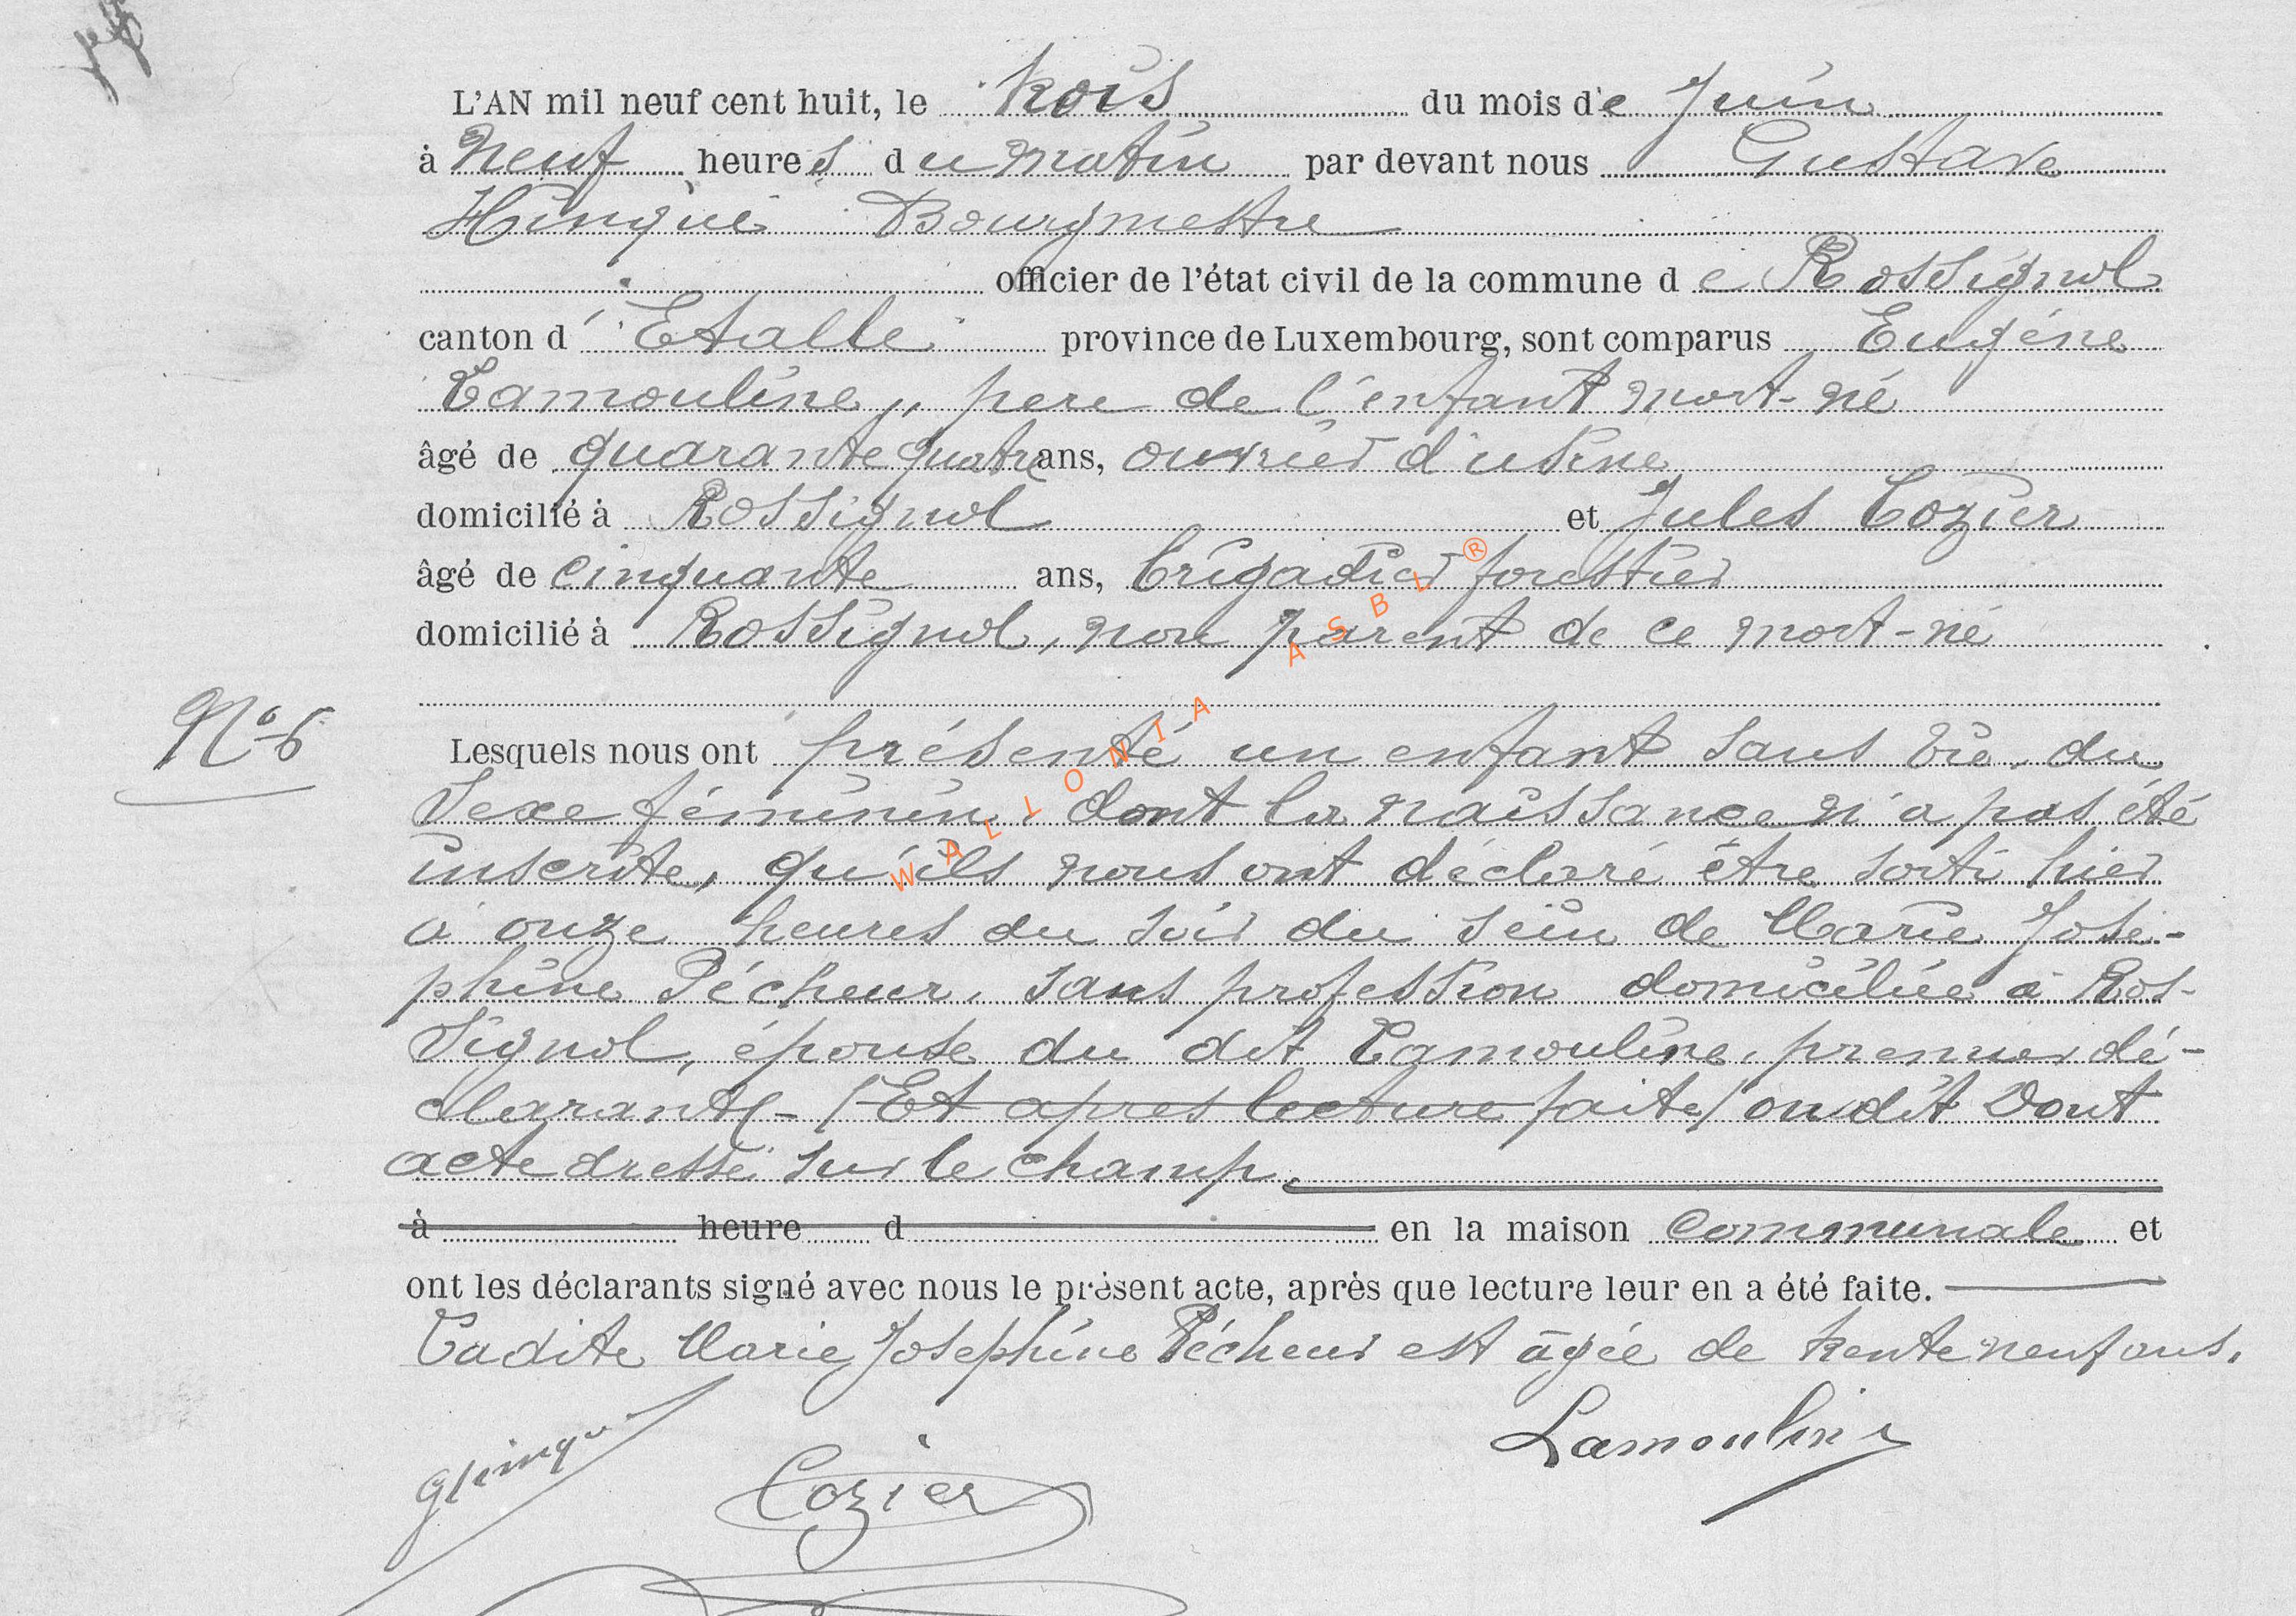 L'AN mil neuf cent huit, le trois du mois de Juin
à Neuf heures du matin par devant nous Gustave
Hinque Bourgmestre
officier de l'état civil de la commune de Rossignol
canton d' Etalle province de Luxembourg, sont comparus Eugène
Lamouline, pere de l'enfant mort-né
âgé de quarante quatre ans, ouvrier d'usine
domicilié à Rossignol et Jules Cozier
âgé de cinquante ans, brigadier forestier
domicilié à Rossignol, non parent de ce mort-né
No 6
Lesquels nous ont présenté un enfant sans vie, du
Sexe féminin, dont la naissance n'a pas été
inscrite, qu'ils nous ont déclaré être sorti hier
à onze heures du soir du sein de Marie José-
phine Pécheur, sans profession domiciliée à Ros-
signol, épouse du dit Lamouline, premier dé-
clarant - / Et apres lecture faite / on dit Dont
acte dressé sur le champ.
à heure d en la maison communale et
ont les déclarants signé avec nous le présent acte, après que lecture leur en a été faite.
Ladite Marie Joséphine Pécheur est âgée de trente neuf ans.
GHinque
Cozier
Lamouline
WALLONIA ASBL ®